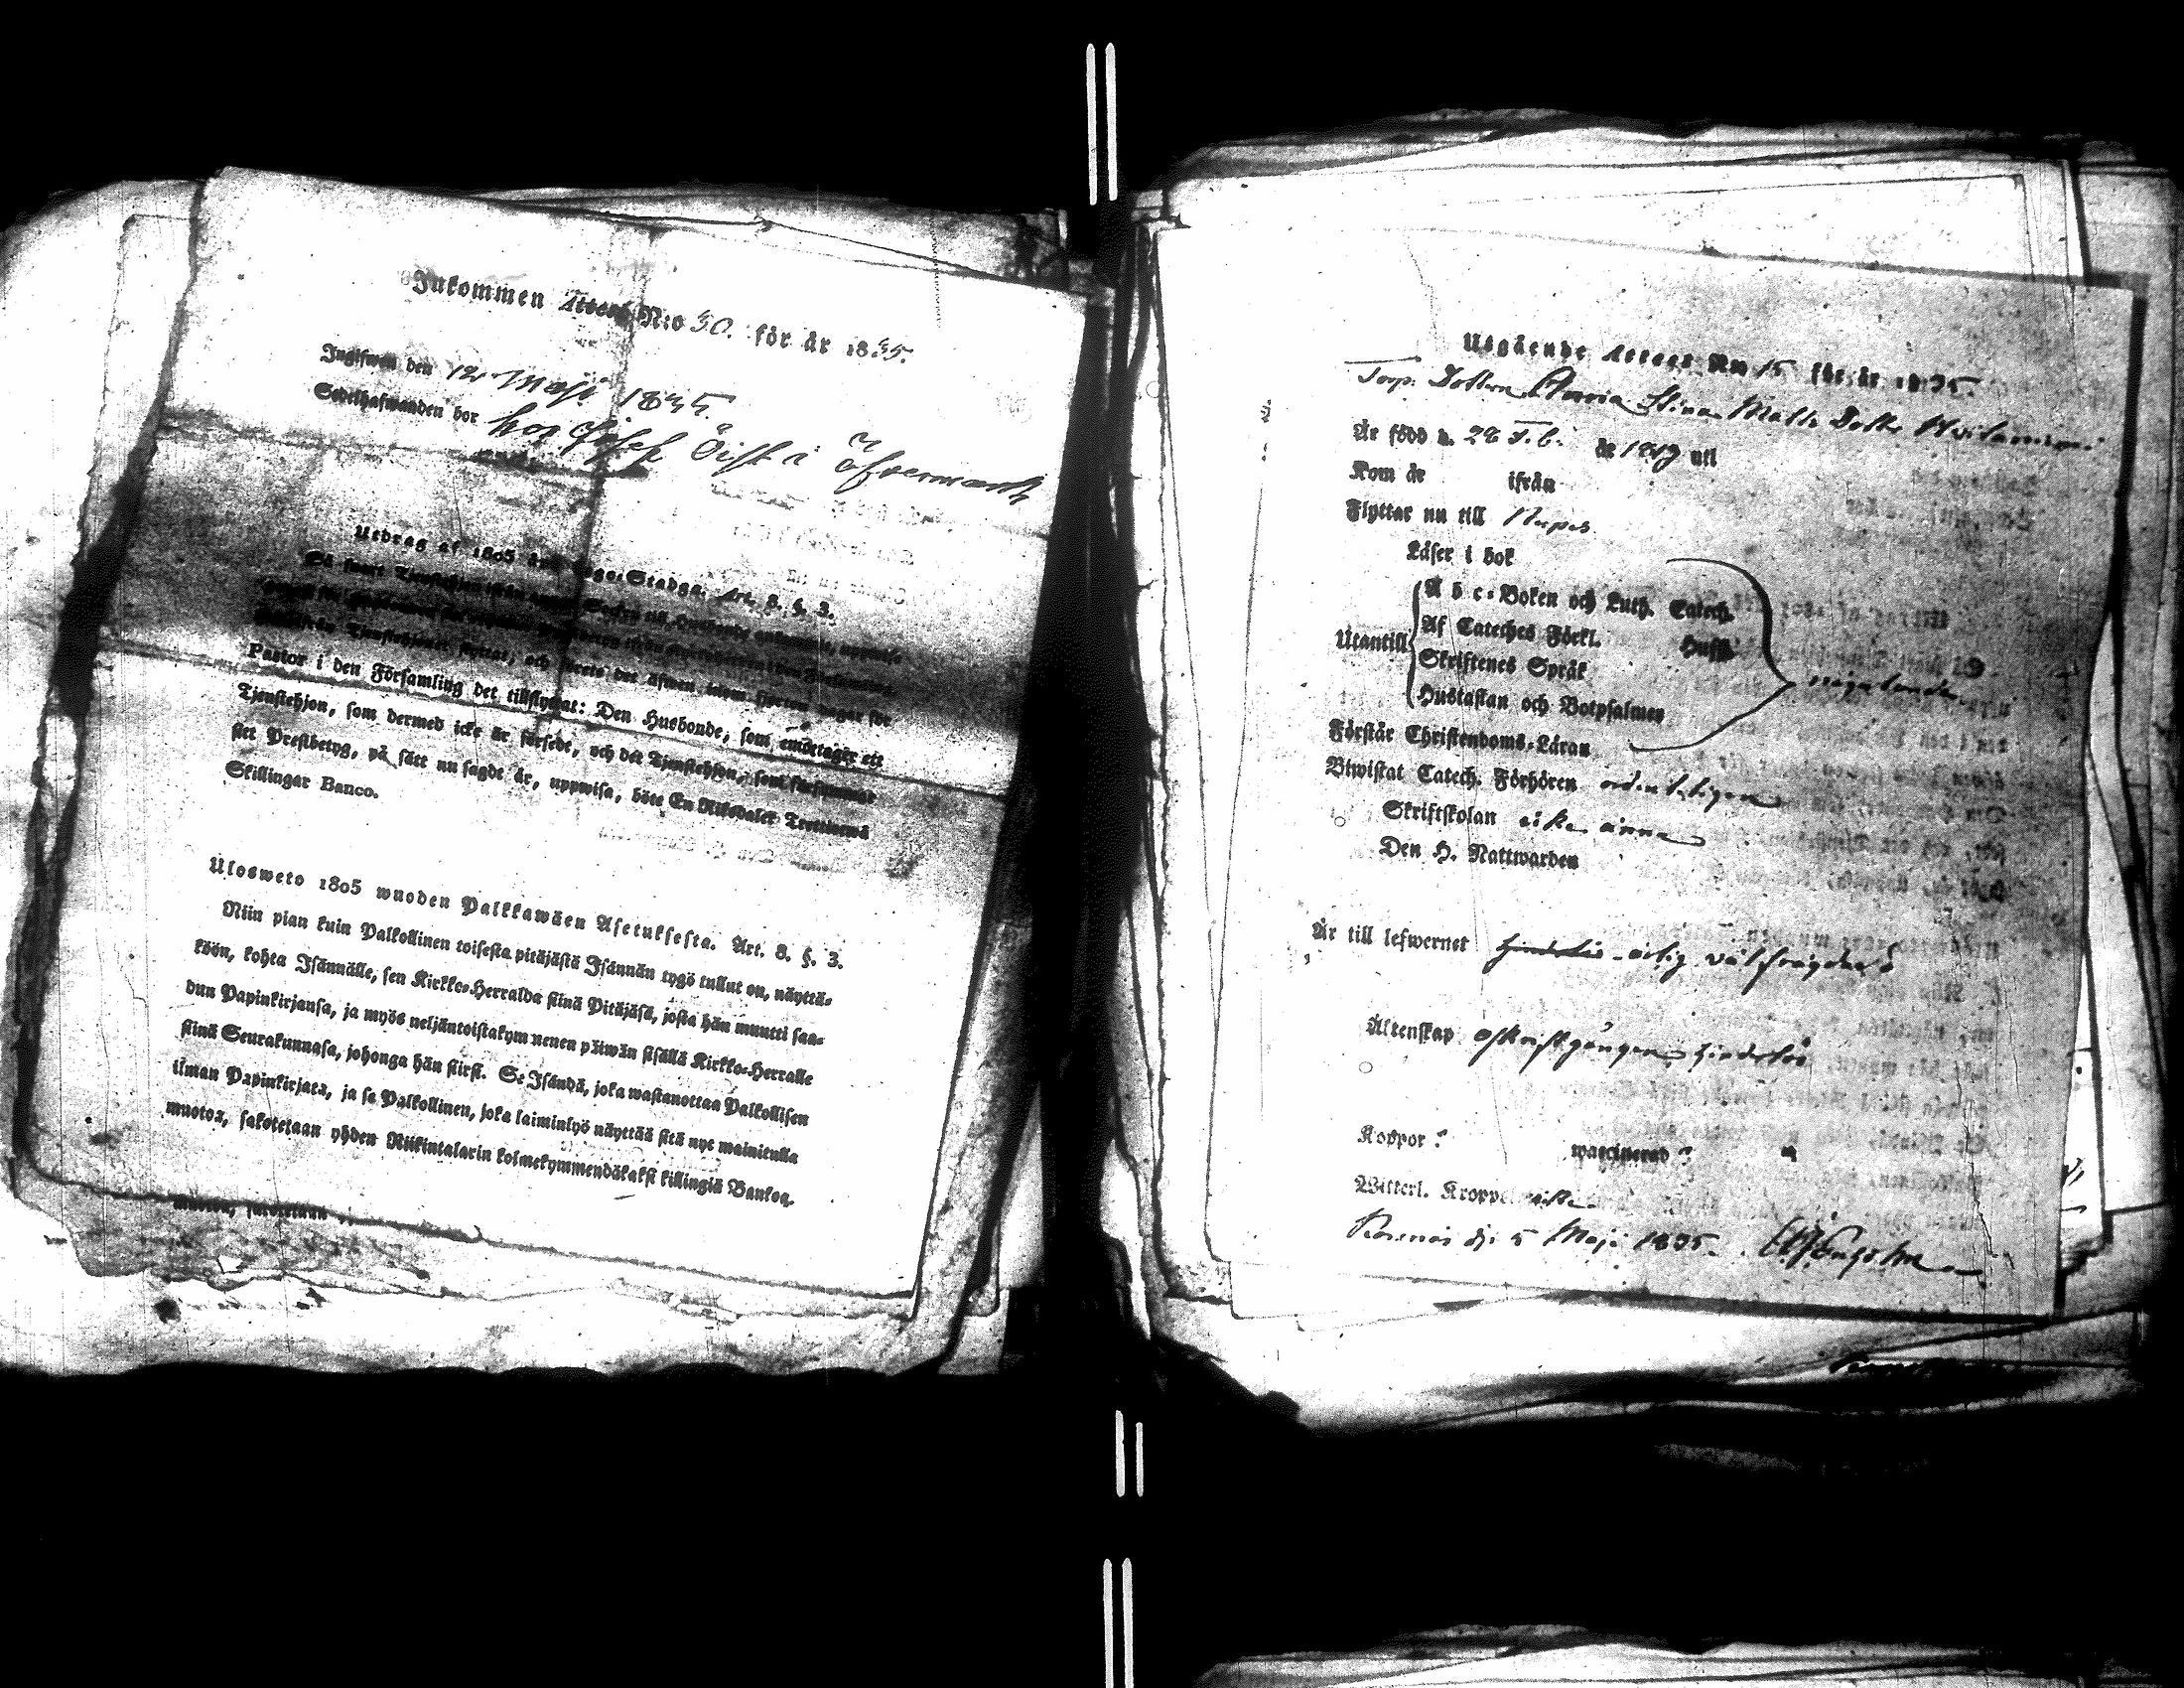 Inkommen Attest N:o 30. för år 1835.
Ingifwen den 12 Maji 1835.
Sedelhafwanden bor hos Josep Öist i Öfvermark
Utdrag af 1805 års Lego-Stadga. Art. 8. §. 3.
Så snart Tjenstehjon ifrån annan Socken till Husbonde ankommit, uppwise
Tjenstehjonet flyttat, och inom fjorton dagar för
Pastor i den Församling det tillflyttat: Den Husbonde, som emottager ett
Tjenstehjon, som dermed icke är försedt, och det Tjenstehjon, som försummar
sitt Prestbetyg, på sätt nu sagdt är, uppwisa, böte En Riksdaler Trettiotwå
Skillingar Banco.
Ulosweto 1805 wuoden Palkkawäen Asetuksesta. Art. 8. §. 3.
Niin pian kuin Palkollinen toisesta pitäjästä Isännän tygö tullut on, näyttä-
köön, kohta Isännälle, sen Kirkko-Herralda siinä Pitäjäsä, josta hän muutti saa-
dun Papinkirjansa, ja myös neljäntoistakymmenen päiwän sisällä Kirkko-Herralle
siinä Seurakunnasa, johonga hän siirsi. Se Isändä, joka wastanottaa Palkollisen
ilman Papinkirjata, ja se Palkollinen, joka laiminlyö näyttää sitä nyt mainitulla
muotoa, sakotetaan yhden Riikintalarin kolmekymmendäkaksi killingiä Bankos.
muotoa, sakotetaan
Utgående Attest No 15 för år 1835.
Torp. Dottern Anna Stina Matts Dotter
Är född d. 28 Feb. år 1819 uti
Kom år ifrån
Flyttar nu till Närpes
Läser i bok
Utantill
A b c-Boken och Luth. Catech.
Af Cateches Förkl. Hufst.
Skriftenes Språk
Hustaflan och Botpsalmer
Förstår Christendoms-Läran
någorlunda
Biwistat Catech. Förhören ordentligen
Skriftskolan icke ännu
Den H. Nattwarden
Är till lefwernet ärlig välfrägdad
Äktenskap
Koppor? waccinerad?
Witterl. Kroppslyte
d. 5 Maji 1835.